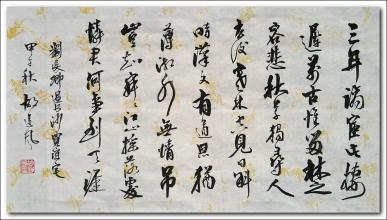 三年謫宦此棲
遲萬古惟留楚
客悲秋草獨尋人
去後寒林空見日斜
時漢文有道恩猶
薄湘水無情吊
豈知寂々江山搖落處
憐君何事到天涯
劉長卿過長沙賈誼宅
甲午秋 胡